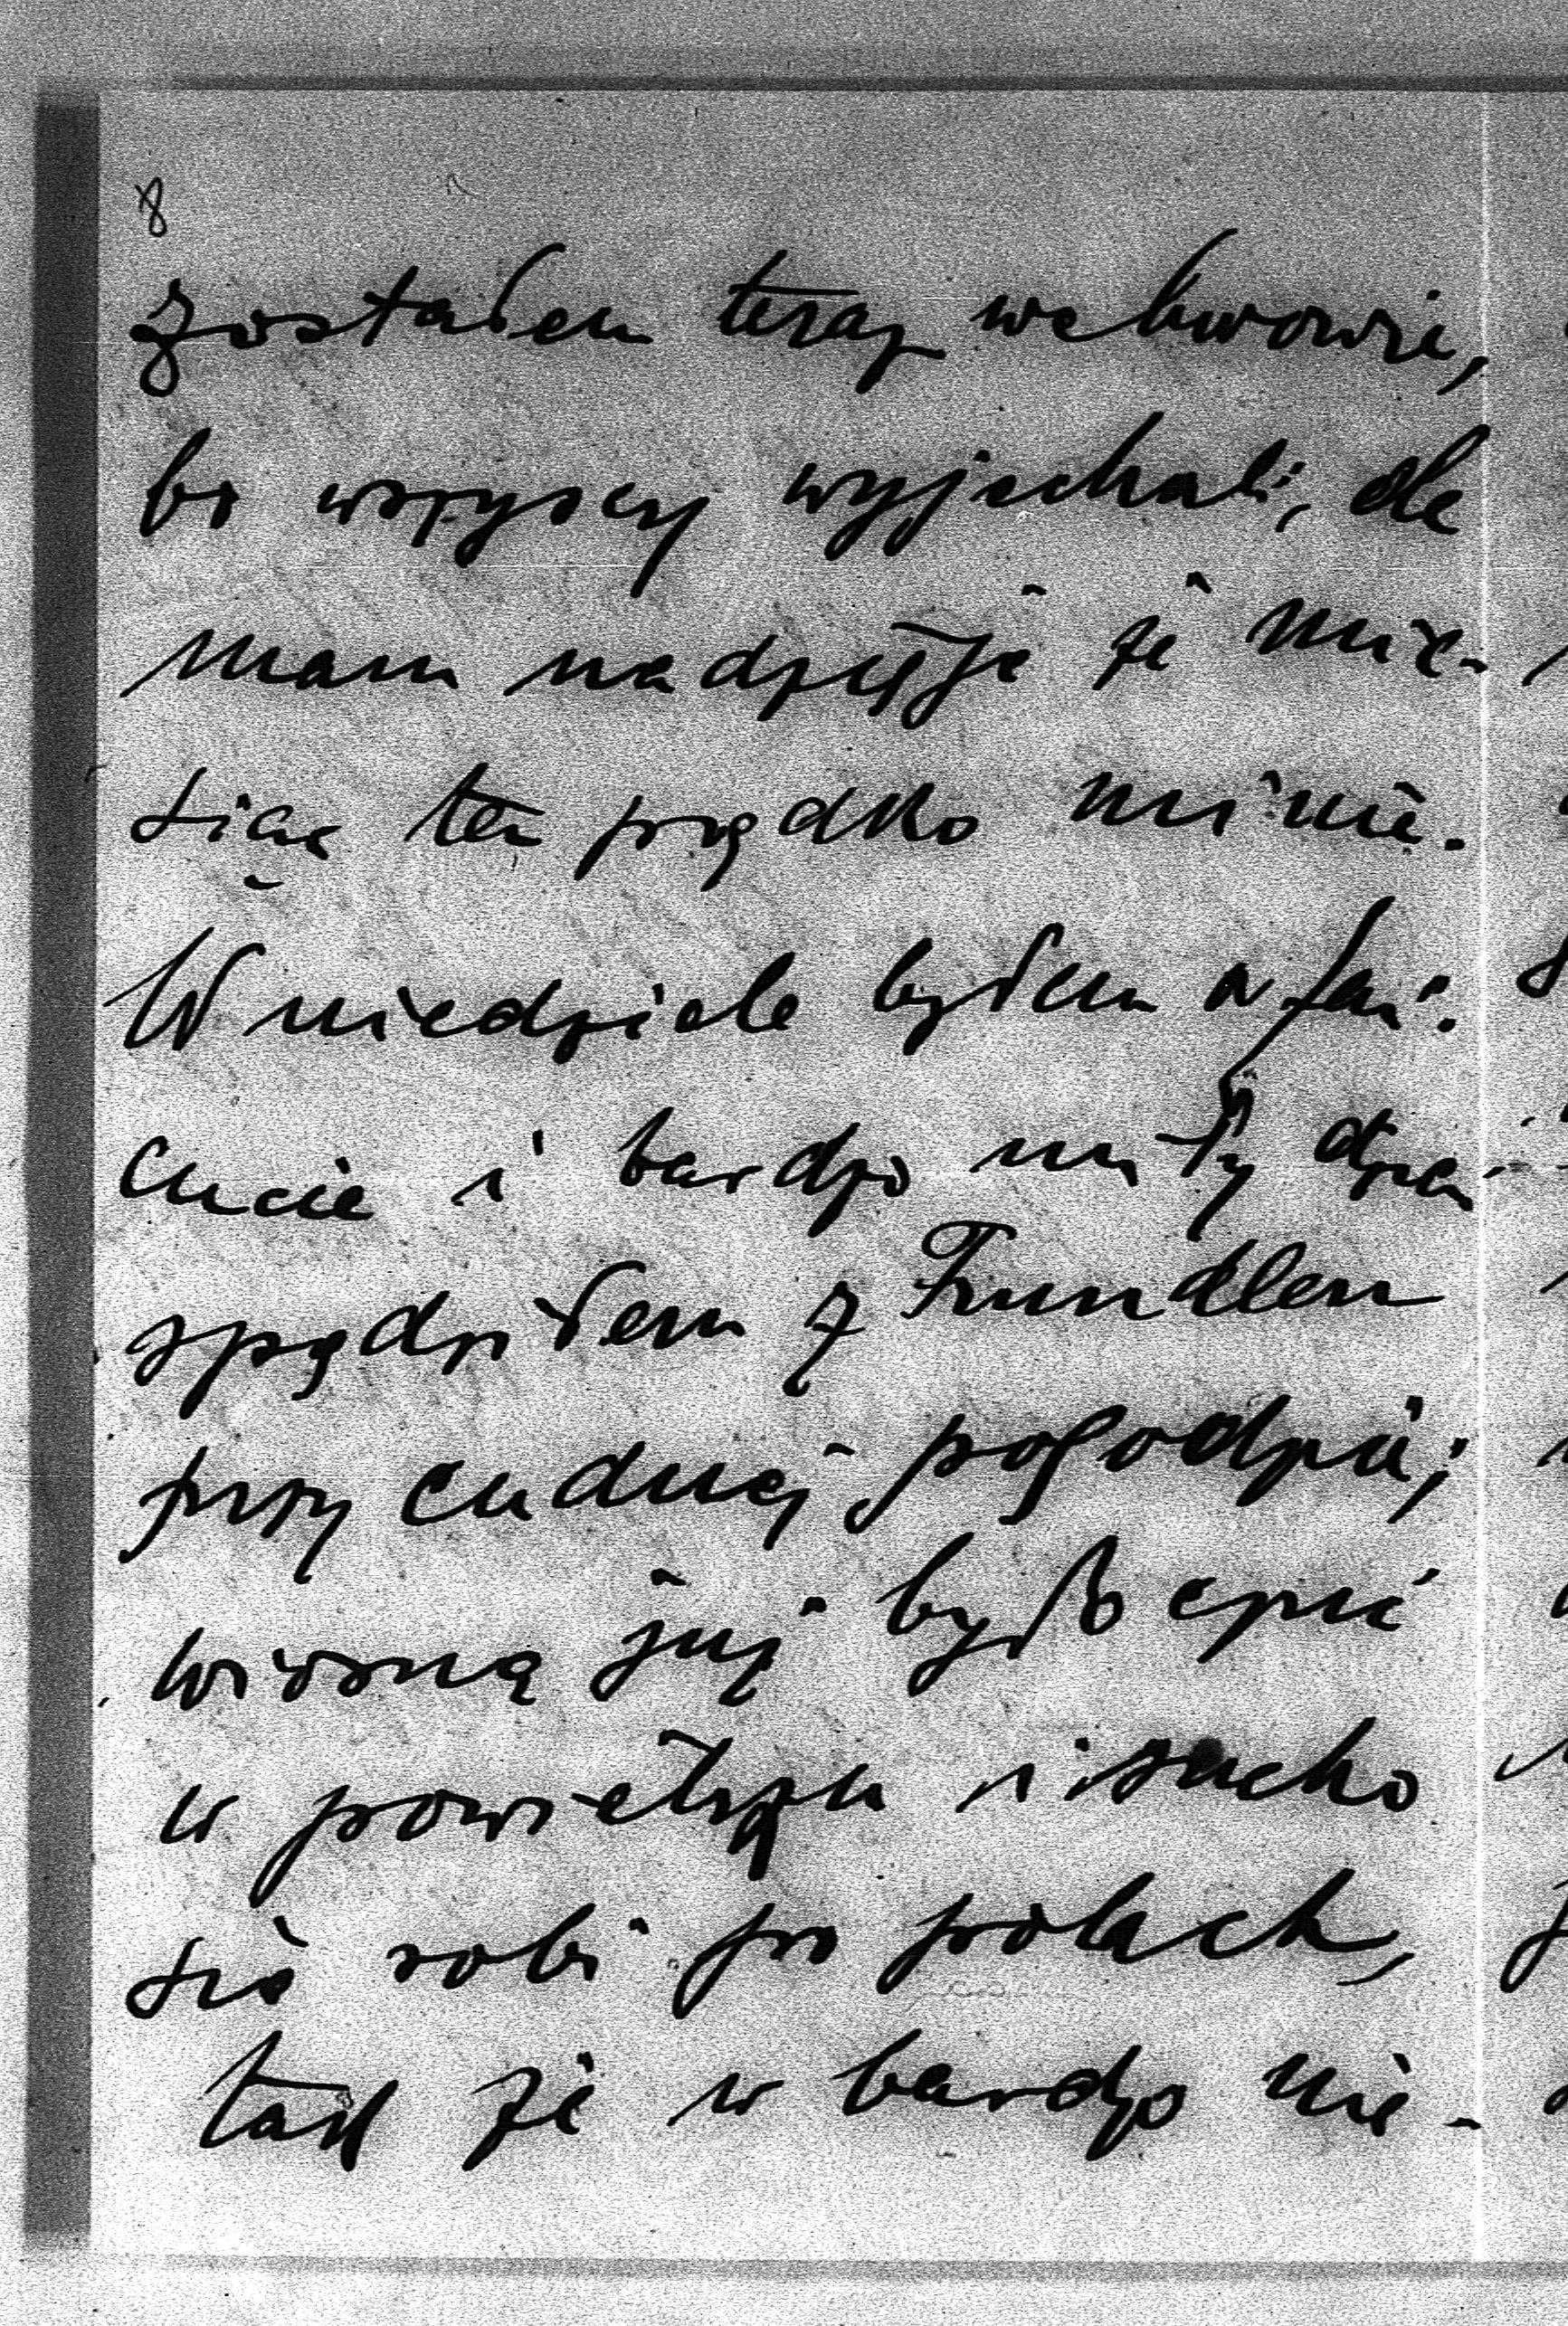 8
zostałem teraz we Lwowie,
bo wszyscy wyjechali, ale
mam nadzieję że mie-
siąc ten prędko minie.
W niedziele byłem w Łań-
cucie i bardzo miły dzień
spędziłem z Frundlem
przy cudnej pogodzie;
wiosną już było czuć
w powietrzu i sucho
się robi po polach,
tak że w bardzo nie-